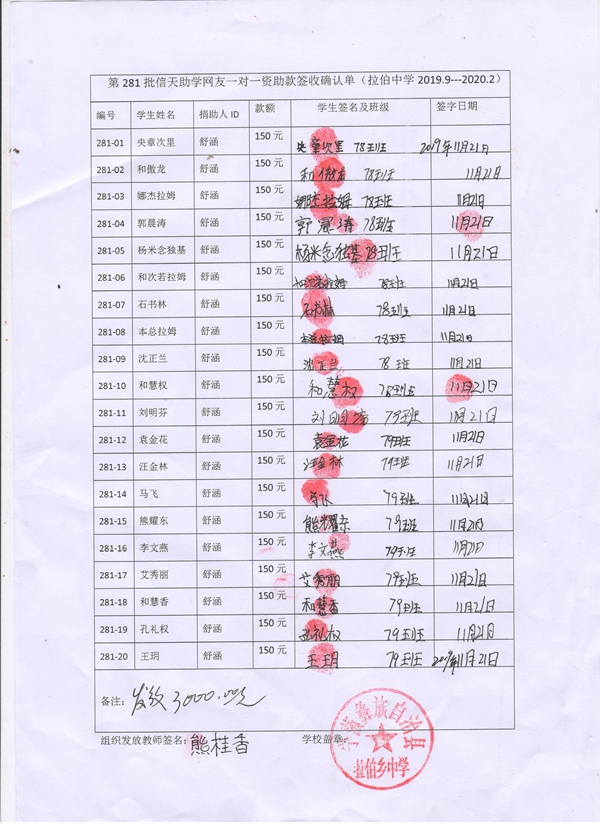 第 281 批信天助学网友一对一资助款签收确认单（拉伯中学 2019.9---2020.2）
编号 学生姓名 捐助人 ID 款额 学生签名及班级 签字日期
281-01 央章次里 舒涵 150 元 央章次里 78班 2019年11月21日
281-02 和傲龙 舒涵 150 元 和傲龙 78班 11月21日
281-03 娜杰拉姆 舒涵 150 元 娜杰拉姆 78班 11月21日
281-04 郭晨涛 舒涵 150 元 郭晨涛 78班 11月21日
281-05 杨米念独基 舒涵 150 元 杨米念独基 78班 11月21日
281-06 和次若拉姆 舒涵 150 元 和次若拉姆 78班 11月21日
281-07 石书林 舒涵 150 元 石书林 78班 11月21日
281-08 本总拉姆 舒涵 150 元 本总拉姆 78班 11月21日
281-09 沈正兰 舒涵 150 元 沈正兰 78 班 11月21日
281-10 和慧权 舒涵 150 元 和慧权 78班 11月21日
281-11 刘明芬 舒涵 150 元 刘明芬 79班 11月21日
281-12 袁金花 舒涵 150 元 袁金花 79班 11月21日
281-13 汪金林 舒涵 150 元 汪金林 79班 11月21日
281-14 马飞 舒涵 150 元 马飞 79班 11月21日
281-15 熊耀东 舒涵 150 元 熊耀东 79班 11月21日
281-16 李文燕 舒涵 150 元 李文燕 79班 11月21日
281-17 艾秀丽 舒涵 150 元 艾秀丽 79班 11月21日
281-18 和慧香 舒涵 150 元 和慧香 79班 11月21日
281-19 孔礼权 舒涵 150 元 孔礼权 79班 11月21日
281-20 王玥 舒涵 150 元 王玥 79班 2019年11月21日
备注： 发放3000.00元
组织发放教师签名：熊桂香 学校盖章：
宁蒗彝族自治县
拉伯乡中学